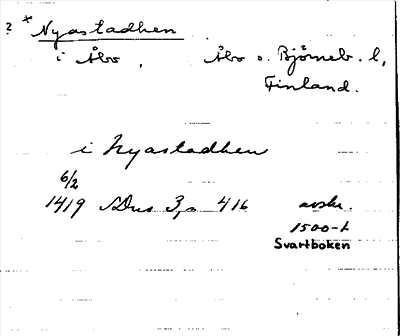 ? * Nyastadhen
i Åbo, Åbo o. Björneb. l,
Finland.
i Nyastadhen
6/2
1419 SDns 3, s 416 avskr.
1500-t
Svartboken